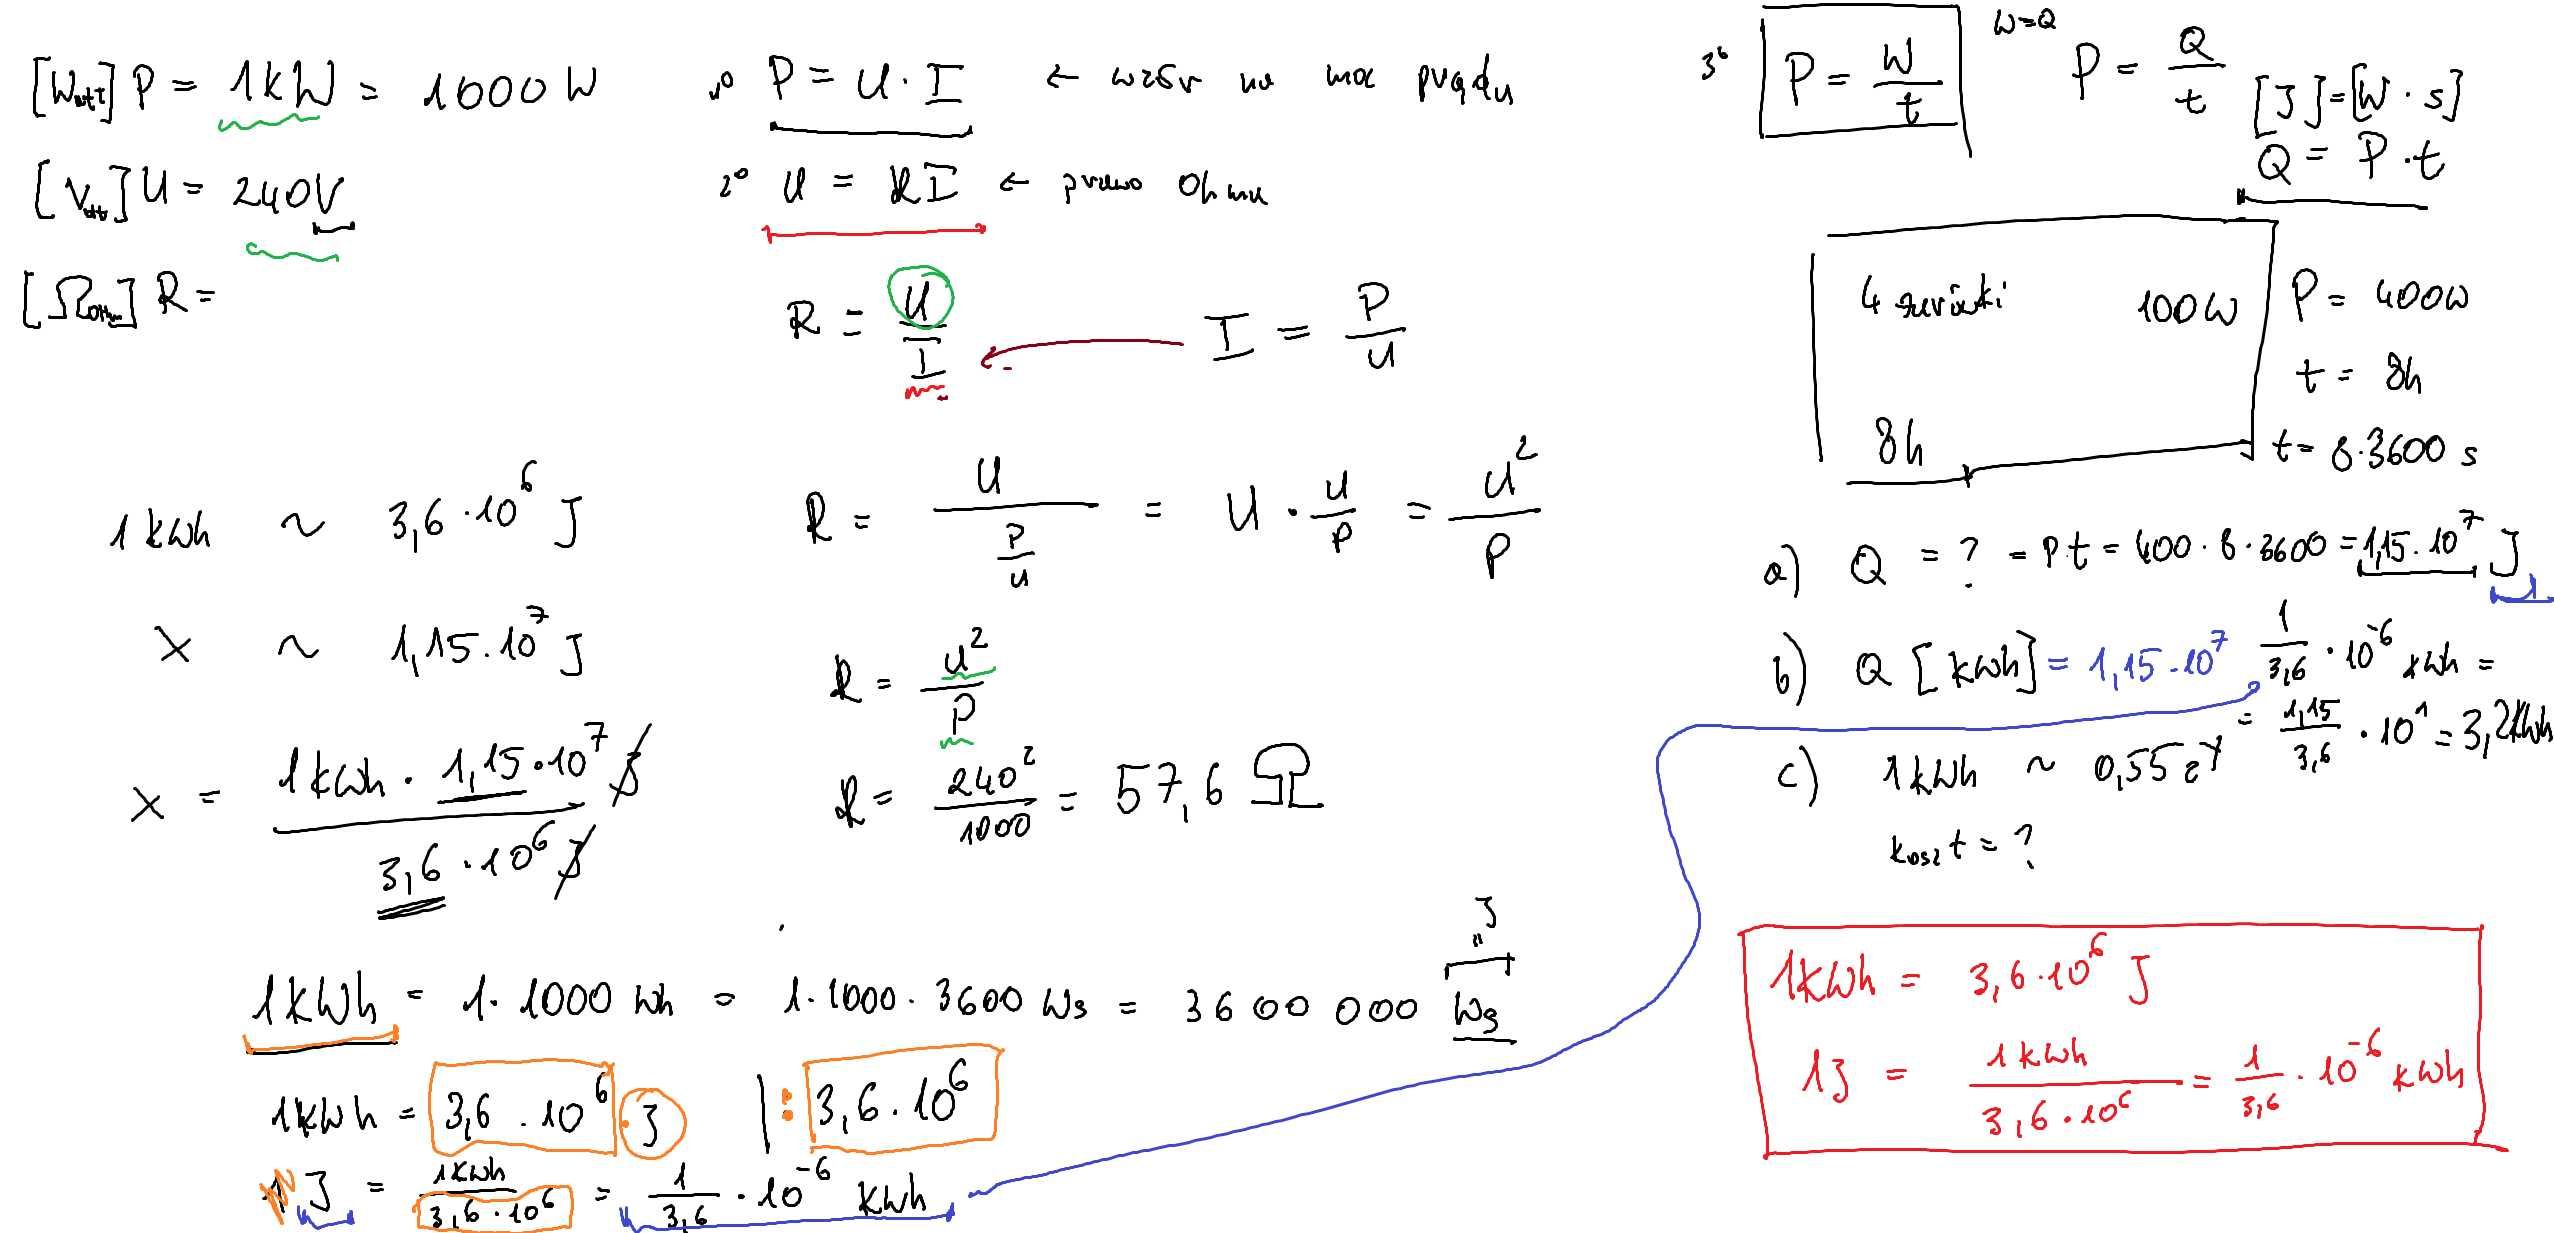 [Watt] P = 1kW = 1000 W
[Volt] U = 240V
[Ω Ohm] R =
1° P = U · I ← wzór na moc prądu
2° U = RI ← prawo Ohma
R = U/I
I = P/U
R = U/(P/U) = U · U/P = U²/P
R = U²/P
R = 240²/1000 = 57,6 Ω
1 kWh ~ 3,6 · 10⁶ J
X ~ 1,15 · 10⁷ J
X = (1kWh · 1,15 · 10⁷ J)/(3,6 · 10⁶ J)
J
"
1kWh = 1 · 1000 Wh = 1 · 1000 · 3600 Ws = 3600 000 Ws
1kWh = 3,6 · 10⁶ · J | : 3,6 · 10⁶
1 J = 1kWh/(3,6 · 10⁶) = 1/3,6 · 10⁻⁶ kWh
3° P = W/t
W=Q
P = Q/t
[J] = [W · s]
Q = P · t
4 żarówki 100W
8h
P = 400W
t = 8h
t = 8·3600 s
a) Q = ? = P·t = 400 · 8 · 3600 = 1,15 · 10⁷ J
b) Q [kWh] = 1,15 · 10⁷ 1/3,6 · 10⁻⁶ kWh =
= 1,15/3,6 · 10¹ = 3,2kWh
c) 1kWh ~ 0,55 zł
koszt = ?
1kWh = 3,6 · 10⁶ J
1J = 1kWh/(3,6 · 10⁶) = 1/3,6 · 10⁻⁶ kWh